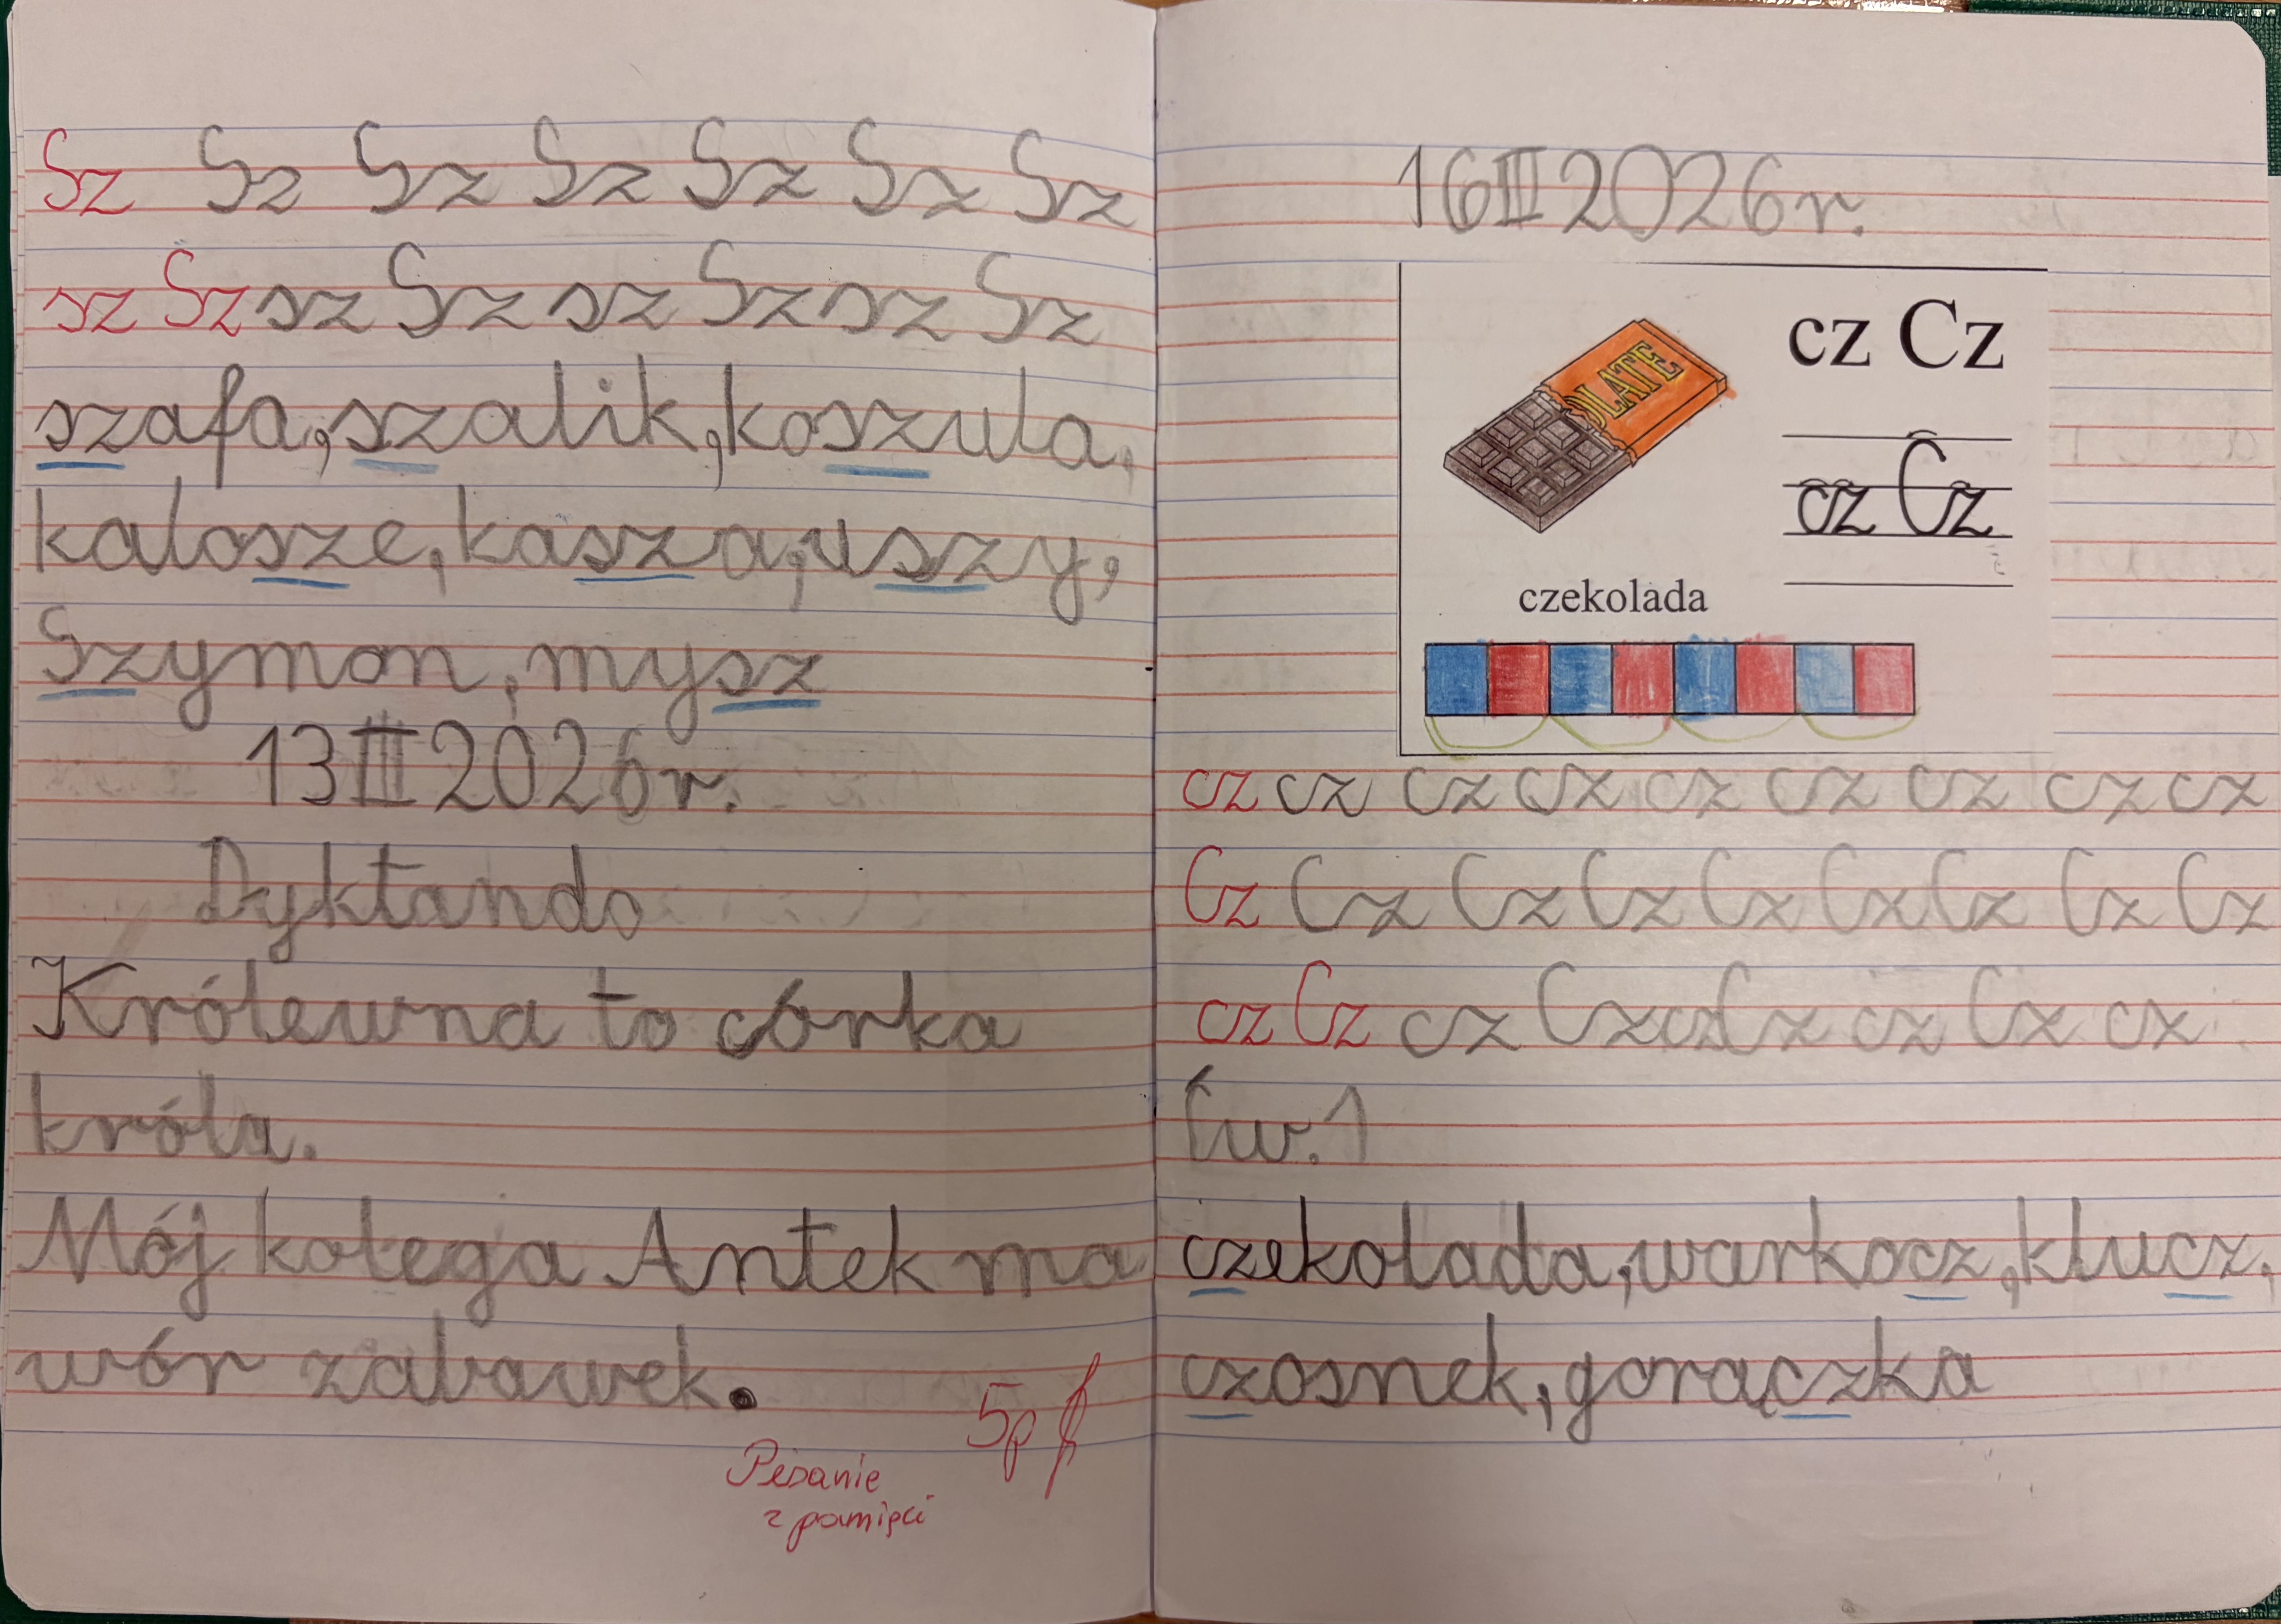 Sz Sz Sz Sz Sz Sz Sz
sz Sz sz Sz sz Sz sz Sz
szafa, szalik, koszula,
kalosze, kasza, uszy,
Szymon, mysz
13 III 2026 r.
Dyktando
Królewna to córka
króla.
Mój kolega Antek ma
wór zabawek.
5p
Pisanie
z pamięci
16 III 2026 r.
cz Cz
OLATE
cz Cz
czekolada
cz cz cz cz cz cz cz cz cz
Cz Cz Cz Cz Cz Cz Cz Cz Cz
cz Cz cz Cz cz Cz cz Cz cz
Ćw. 1
czekolada, warkocz, klucz,
czosnek, gorączka